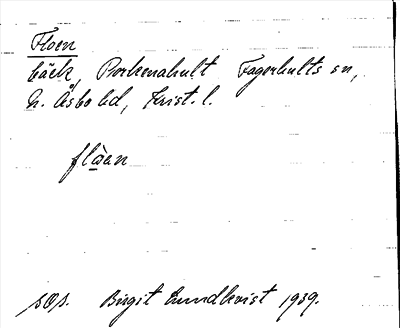 Floen
bäck, Porkenahult Fagerhults sn,
N. Åsbo hd, Krist. l.
flòen
sOp. Birgit Lundkvist 1939.